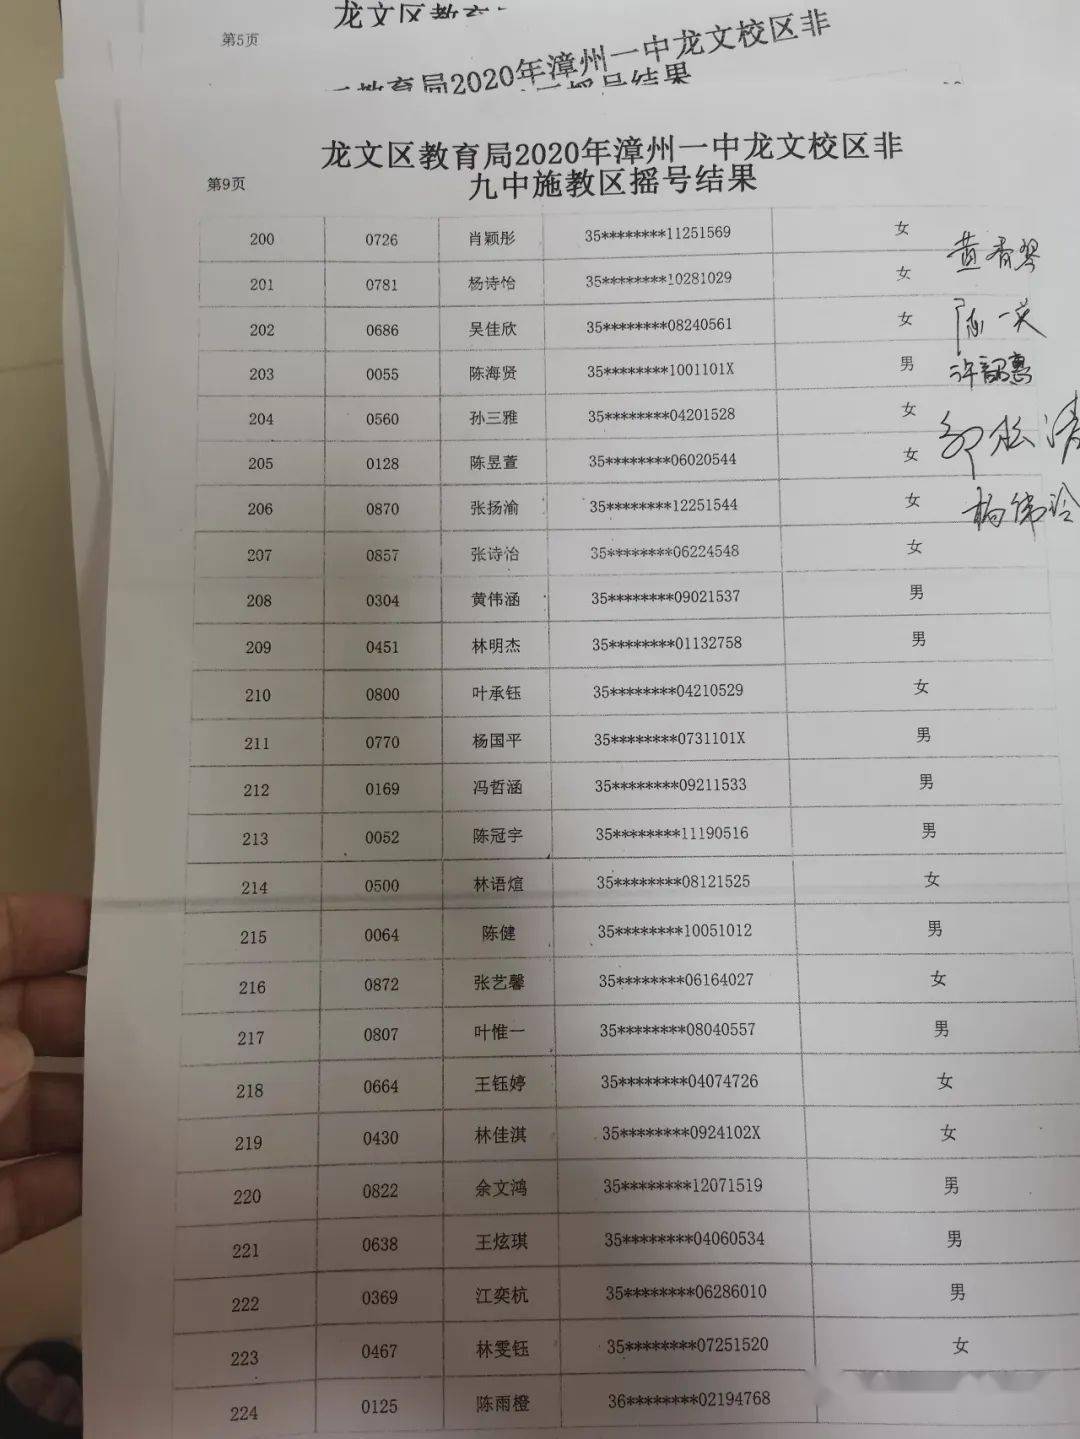 第5页
龙文区教育
教育局2020年漳州一中龙文校区非
区摇号结果
龙文区教育局2020年漳州一中龙文校区非
第9页
九中施教区摇号结果
200 0726 肖颖彤 35********11251569 女
黄香琴
201 0781 杨诗怡 35********10281029 女
202 0686 吴佳欣 35********08240561 女
203 0055 陈海贤 35********1001101X 男
许韶惠
204 0560 孙三雅 35********04201528 女
205 0128 陈昱萱 35********06020544 女
206 0870 张扬渝 35********12251544 女
杨伟玲
207 0857 张诗冶 35********06224548 女
208 0304 黄伟涵 35********09021537 男
209 0451 林明杰 35********01132758 男
210 0800 叶承钰 35********04210529 女
211 0770 杨国平 35********0731101X 男
212 0169 冯哲涵 35********09211533 男
213 0052 陈冠宇 35********11190516 男
214 0500 林语煊 35********08121525 女
215 0064 陈健 35********10051012 男
216 0872 张艺馨 35********06164027 女
217 0807 叶惟一 35********08040557 男
218 0664 王钰婷 35********04074726 女
219 0430 林佳淇 35********0924102X 女
220 0822 余文鸿 35********12071519 男
221 0638 王炫琪 35********04060534 男
222 0369 江奕杭 35********06286010 男
223 0467 林雯钰 35********07251520 女
224 0125 陈雨橙 36********02194768